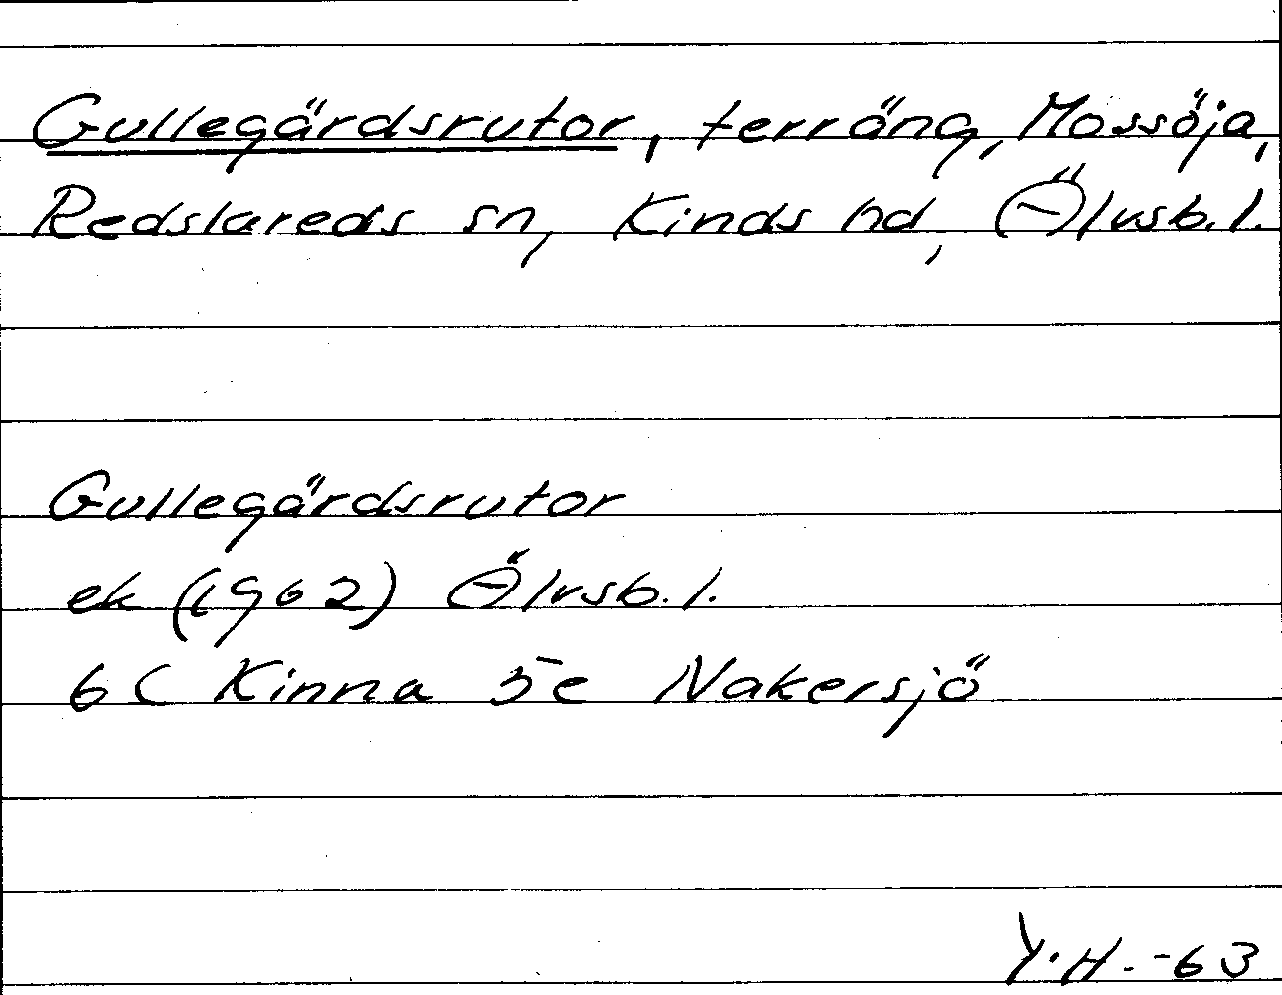 Gullegärdsrutor, terräng, Mossöja,
Redslareds sn, Kinds hd, Älvsb. l.
Gullegärdsrutor
ek (1962) Älvsb. l.
6 C Kinna 5 e Nakersjö
Y.H. -63